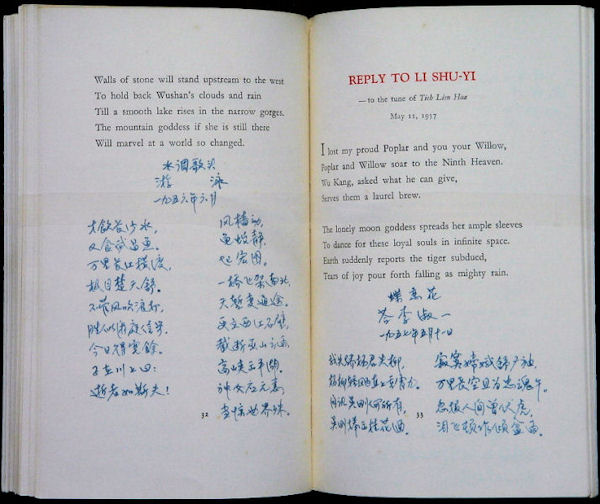 Walls of stone will stand upstream to the west
To hold back Wushan's clouds and rain
Till a smooth lake rises in the narrow gorges.
The mountain goddess if she is still there
Will marvel at a world so changed.
水调歌头
游泳
一九五六年六月
才饮长沙水,
又食武昌鱼.
万里长江横渡,
极目楚天舒.
不管风吹浪打,
胜似闲庭信步,
今日得宽馀.
子在川上曰:
逝者如斯夫!
风樯动,
龟蛇静,
起宏图.
一桥飞架南北,
天堑变通途.
更立西江石壁,
截断巫山云雨,
高峡出平湖.
神女应无恙,
当惊世界殊.
32
REPLY TO LI SHU-YI
—to the tune of Tieh Lien Hua
May 11, 1957
I lost my proud Poplar and you your Willow,
Poplar and Willow soar to the Ninth Heaven.
Wu Kang, asked what he can give,
Serves them a laurel brew.
The lonely moon goddess spreads her ample sleeves
To dance for these loyal souls in infinite space.
Earth suddenly reports the tiger subdued,
Tears of joy pour forth falling as mighty rain.
蝶恋花
答李淑一
一九五七年五月十一日
我失骄杨君失柳,
杨柳轻飏直上重霄九.
问讯吴刚何所有,
吴刚捧出桂花酒.
寂寞嫦娥舒广袖,
万里长空且为忠魂舞.
忽报人间曾伏虎,
泪飞顿作倾盆雨.
33